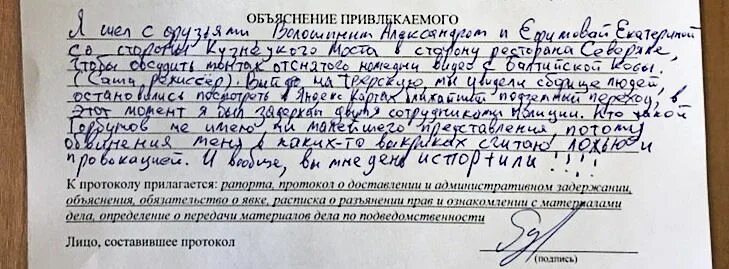 ОБЪЯСНЕНИЕ ПРИВЛЕКАЕМОГО
Я шел с друзьями Волошиним Александром и Ефимовай Екатериной
со стороны Кузнецкого Моста в сторону ресторана Северяне,
чтобы обсудить монтаж отснятого намедни видео с Балтийской Косы.
(Саша режиссёр). Выйдя на Тверскую мы увидели сборище людей,
остановились посмотреть в Яндекс Картах ближайший подземный переход, в
этот момент я был задержан двумя сотрудниками полиции. Кто такой
Горбунов не имею ни малейшего представления, потому
обвинения меня в каких-то выкриках считаю ложью и
провокацией. И вообще, вы мне день испортили !!!!
К протоколу прилагается: рапорта, протокол о доставлении и административном задержании,
объяснения, обязательство о явке, расписка о разъянении прав и ознакомлении с материалами
дела, определение о передачи материалов дела по подведомственности
Лицо, составившее протокол
(подпись)